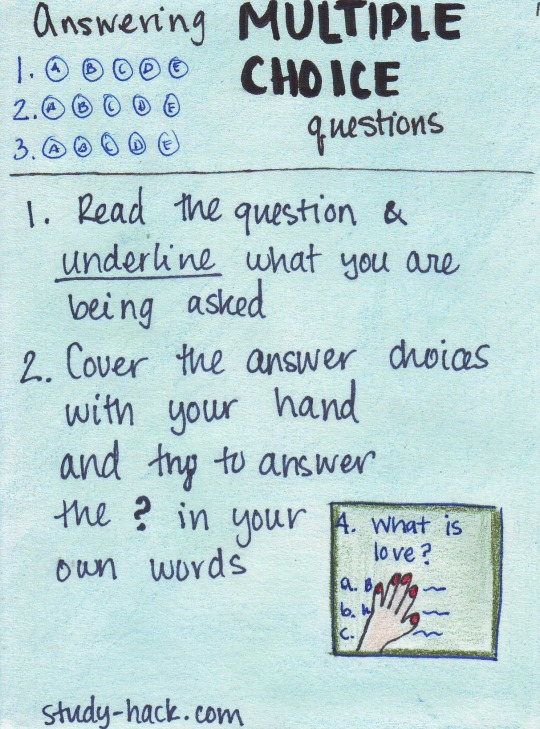 Answering MULTIPLE
CHOICE
questions
1. A B C D E
2. A B C D E
3. A B C D E
1. Read the question &
underline what you are
being asked
2. Cover the answer choices
with your hand
and try to answer
the ? in your
own words
4. What is
love?
a. B
b.
c.
study-hack.com